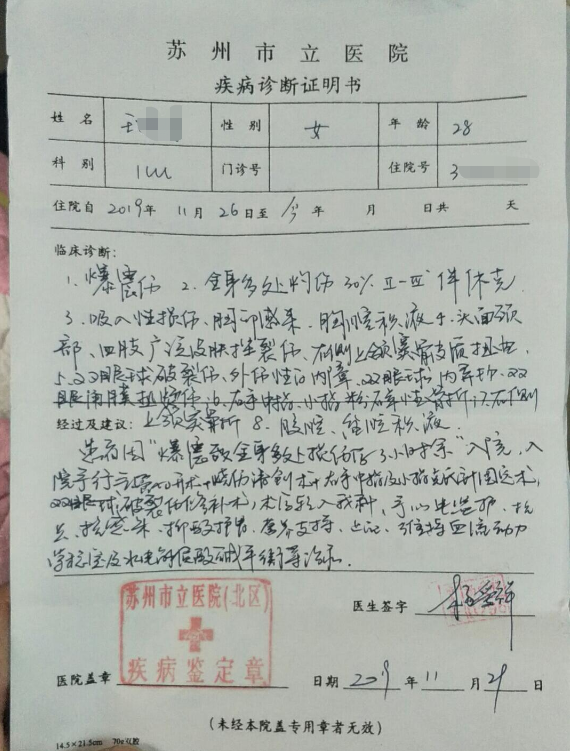 苏州市立医院
疾病诊断证明书
姓名 王 性别 女 年龄 28
科别 ICU 门诊号 住院号 3
住院自 2019年 11月 26日至 今 年 月 日共 天
临床诊断:
1、爆震伤 2、全身多处灼伤 30% Ⅱ-Ⅲ° 伴休克
3、吸入性损伤、肺部感染、胸腔积液 4、头面颈
部、四肢广泛皮肤挫裂伤、右侧上颌窦骨皮质扭曲
5、双眼球破裂伤、外伤性白内障、双眼球内异物、双
眼角膜 伤 6、右手中指、小指粉碎性骨折 7、右侧
经过及建议: 上颌窦骨折 8、腹腔、盆腔积液
患者因“爆震致全身多处损伤后3小时余”入院,入
院予行 术+烧伤清创术+右手中指及小指 固定术,
双眼球破裂伤修补术,术后转入我科,予心电监护、抗
炎、 、抑酸护胃、营养支持、 、维持血流动力
学稳定及水电解质酸碱平衡等治疗.
苏州市立医院(北区)
疾病鉴定章
医生签字
医院盖章 日期 2019 年 11 月 29 日
(未经本院盖专用章者无效)
14.5×21.5cm 70g双胶